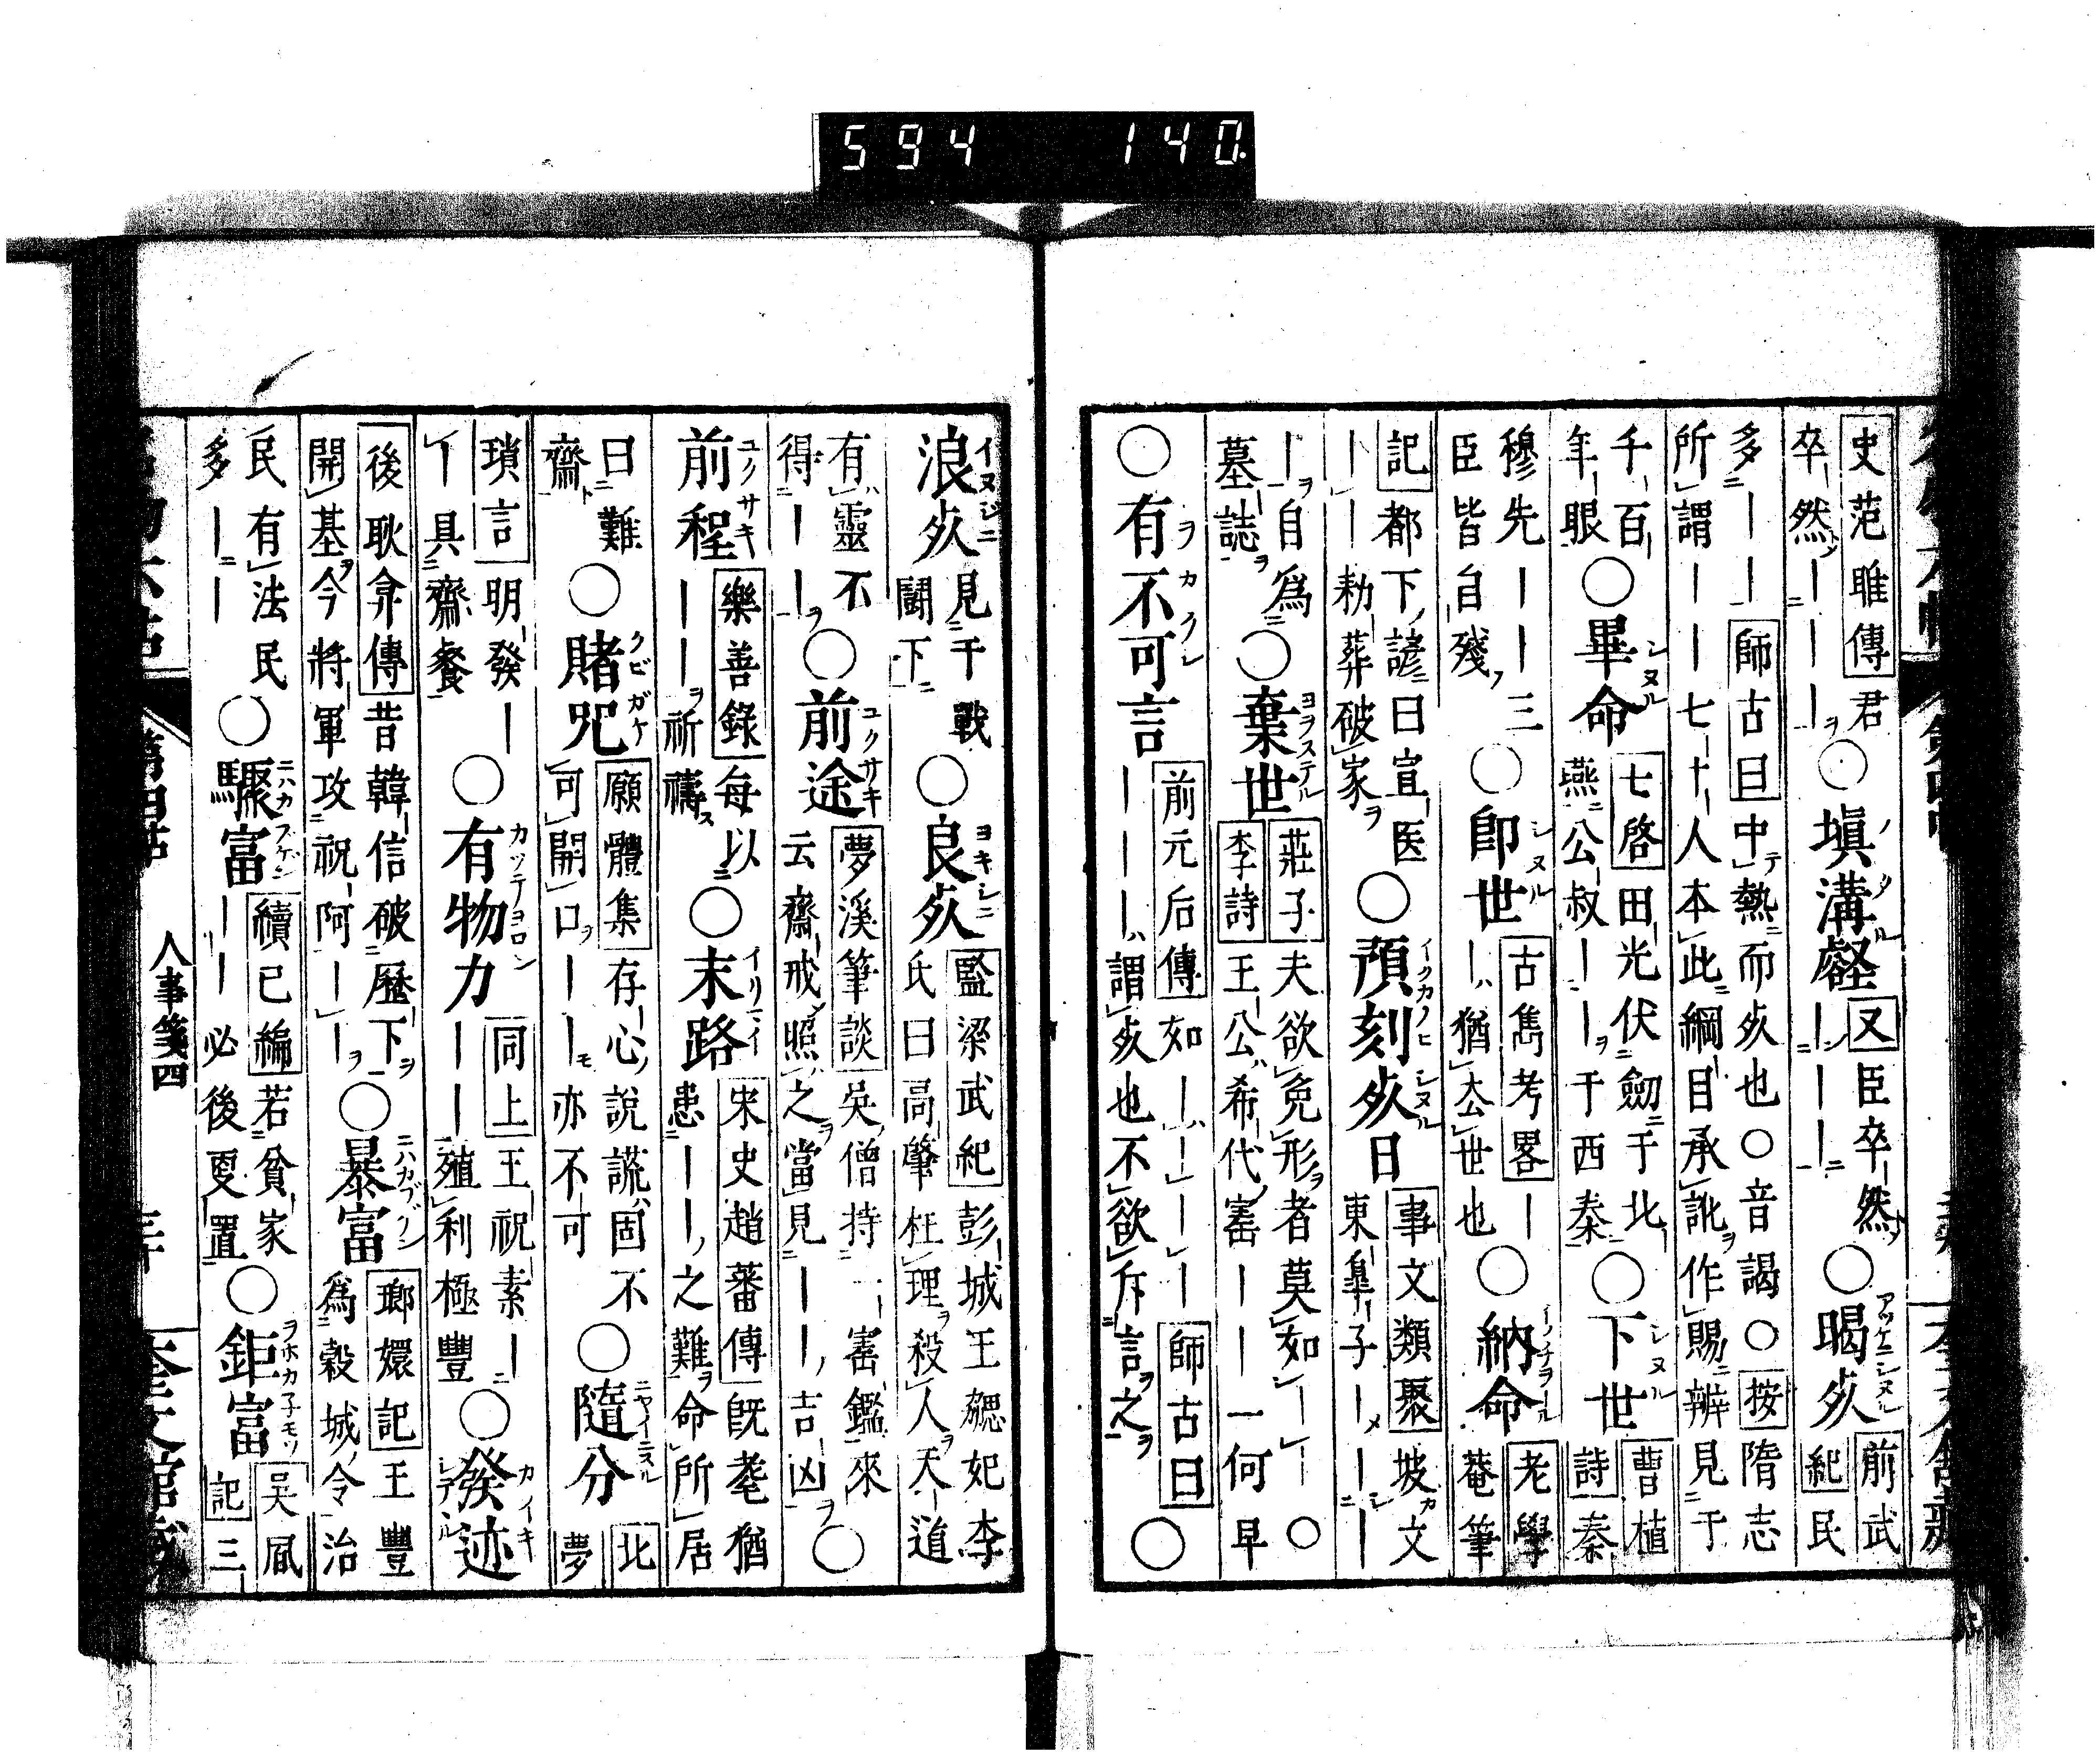 594 140
史范雎傳君
卒然｜｜｜｜
○塡溝壑
又臣卒然
｜｜｜
○暍死
前武
紀民
多｜｜｜師古曰中熱而死也○音謁○按隋志
所謂｜｜｜七十人本此綱目承訛作賜辨見于
千百
年眼
○畢命
七啓田光伏劔于北
燕公叔｜｜于西秦
○下世
曹植
詩秦
穆先｜｜三
臣皆自殘
○卽世
古雋考畧｜
｜猶去世也
○納命
老學
菴筆
記都下諺曰宣医
｜｜｜勑葬破家
○預刻死日
事文類聚坡文
東臯子｜｜｜
｜自爲
墓誌
○棄世
莊子夫欲免形者莫如｜｜○
李詩王公希代寶｜｜一何早
○有不可言
前元后傳如｜｜｜｜師古曰
｜｜｜｜謂死也不欲斥言之
○
浪死
見干戰
鬪下
○良死
監梁武紀彭城王勰妃李
氏曰高肇枉理殺人天道
有靈不
得｜｜
○前途
夢溪筆談吳僧持一寶鑑來
云齋戒照之當見｜｜吉凶
○
前程
樂善錄每以
｜｜祈禱
○末路
宋史趙蕃傳旣耄猶
患｜｜之難命所居
曰難
齋
○賭咒
願體集存心說謊固不
可開口｜｜亦不可
○隨分
北
夢
瑣言明發｜
｜具齋餐
○有物力
同上王祝素｜
｜｜｜殖利極豐
○發迹
後耿弇傳昔韓信破歷下
開基今將軍攻祝阿｜｜
○暴富
瑯嬛記王豐
爲穀城令治
民有法民
多｜｜
○驟富
續己編若貧家
｜｜必後更置
○鉅富
吳風
記三
第四帖
人事箋四